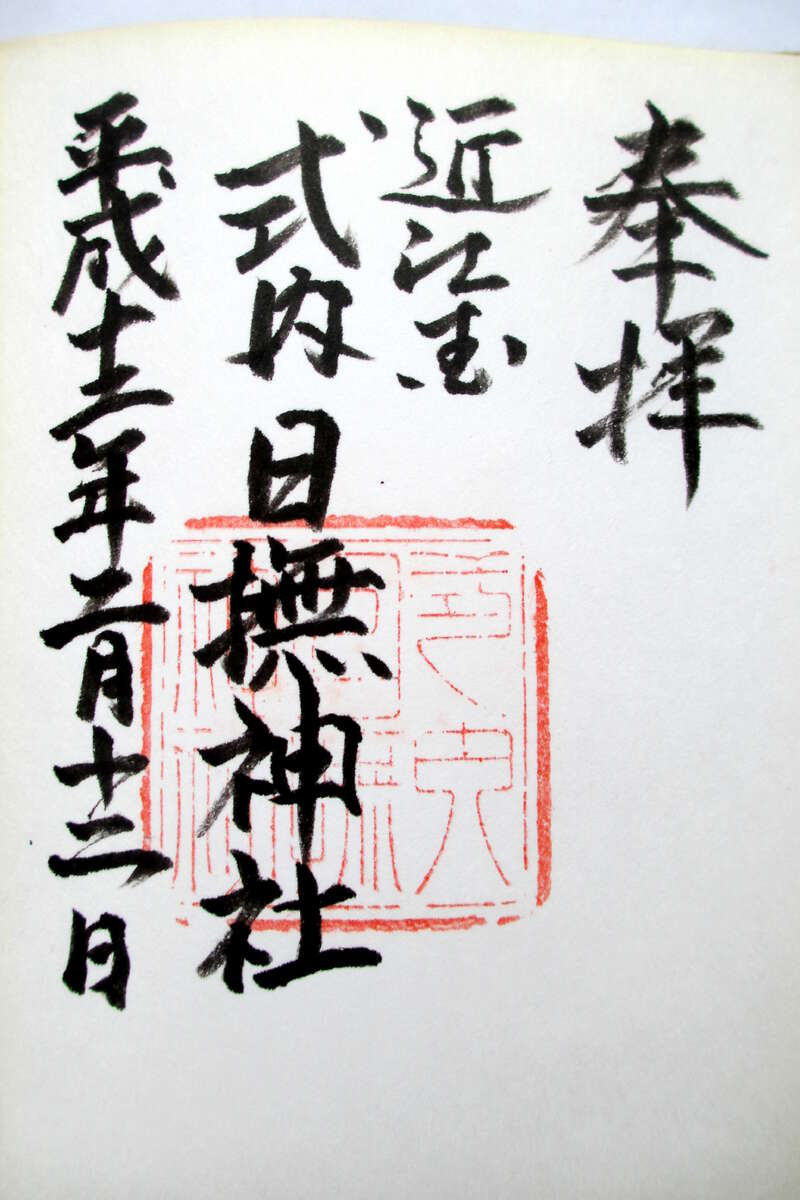 奉拝
近江国
式内 日撫神社
平成十二年二月十二日